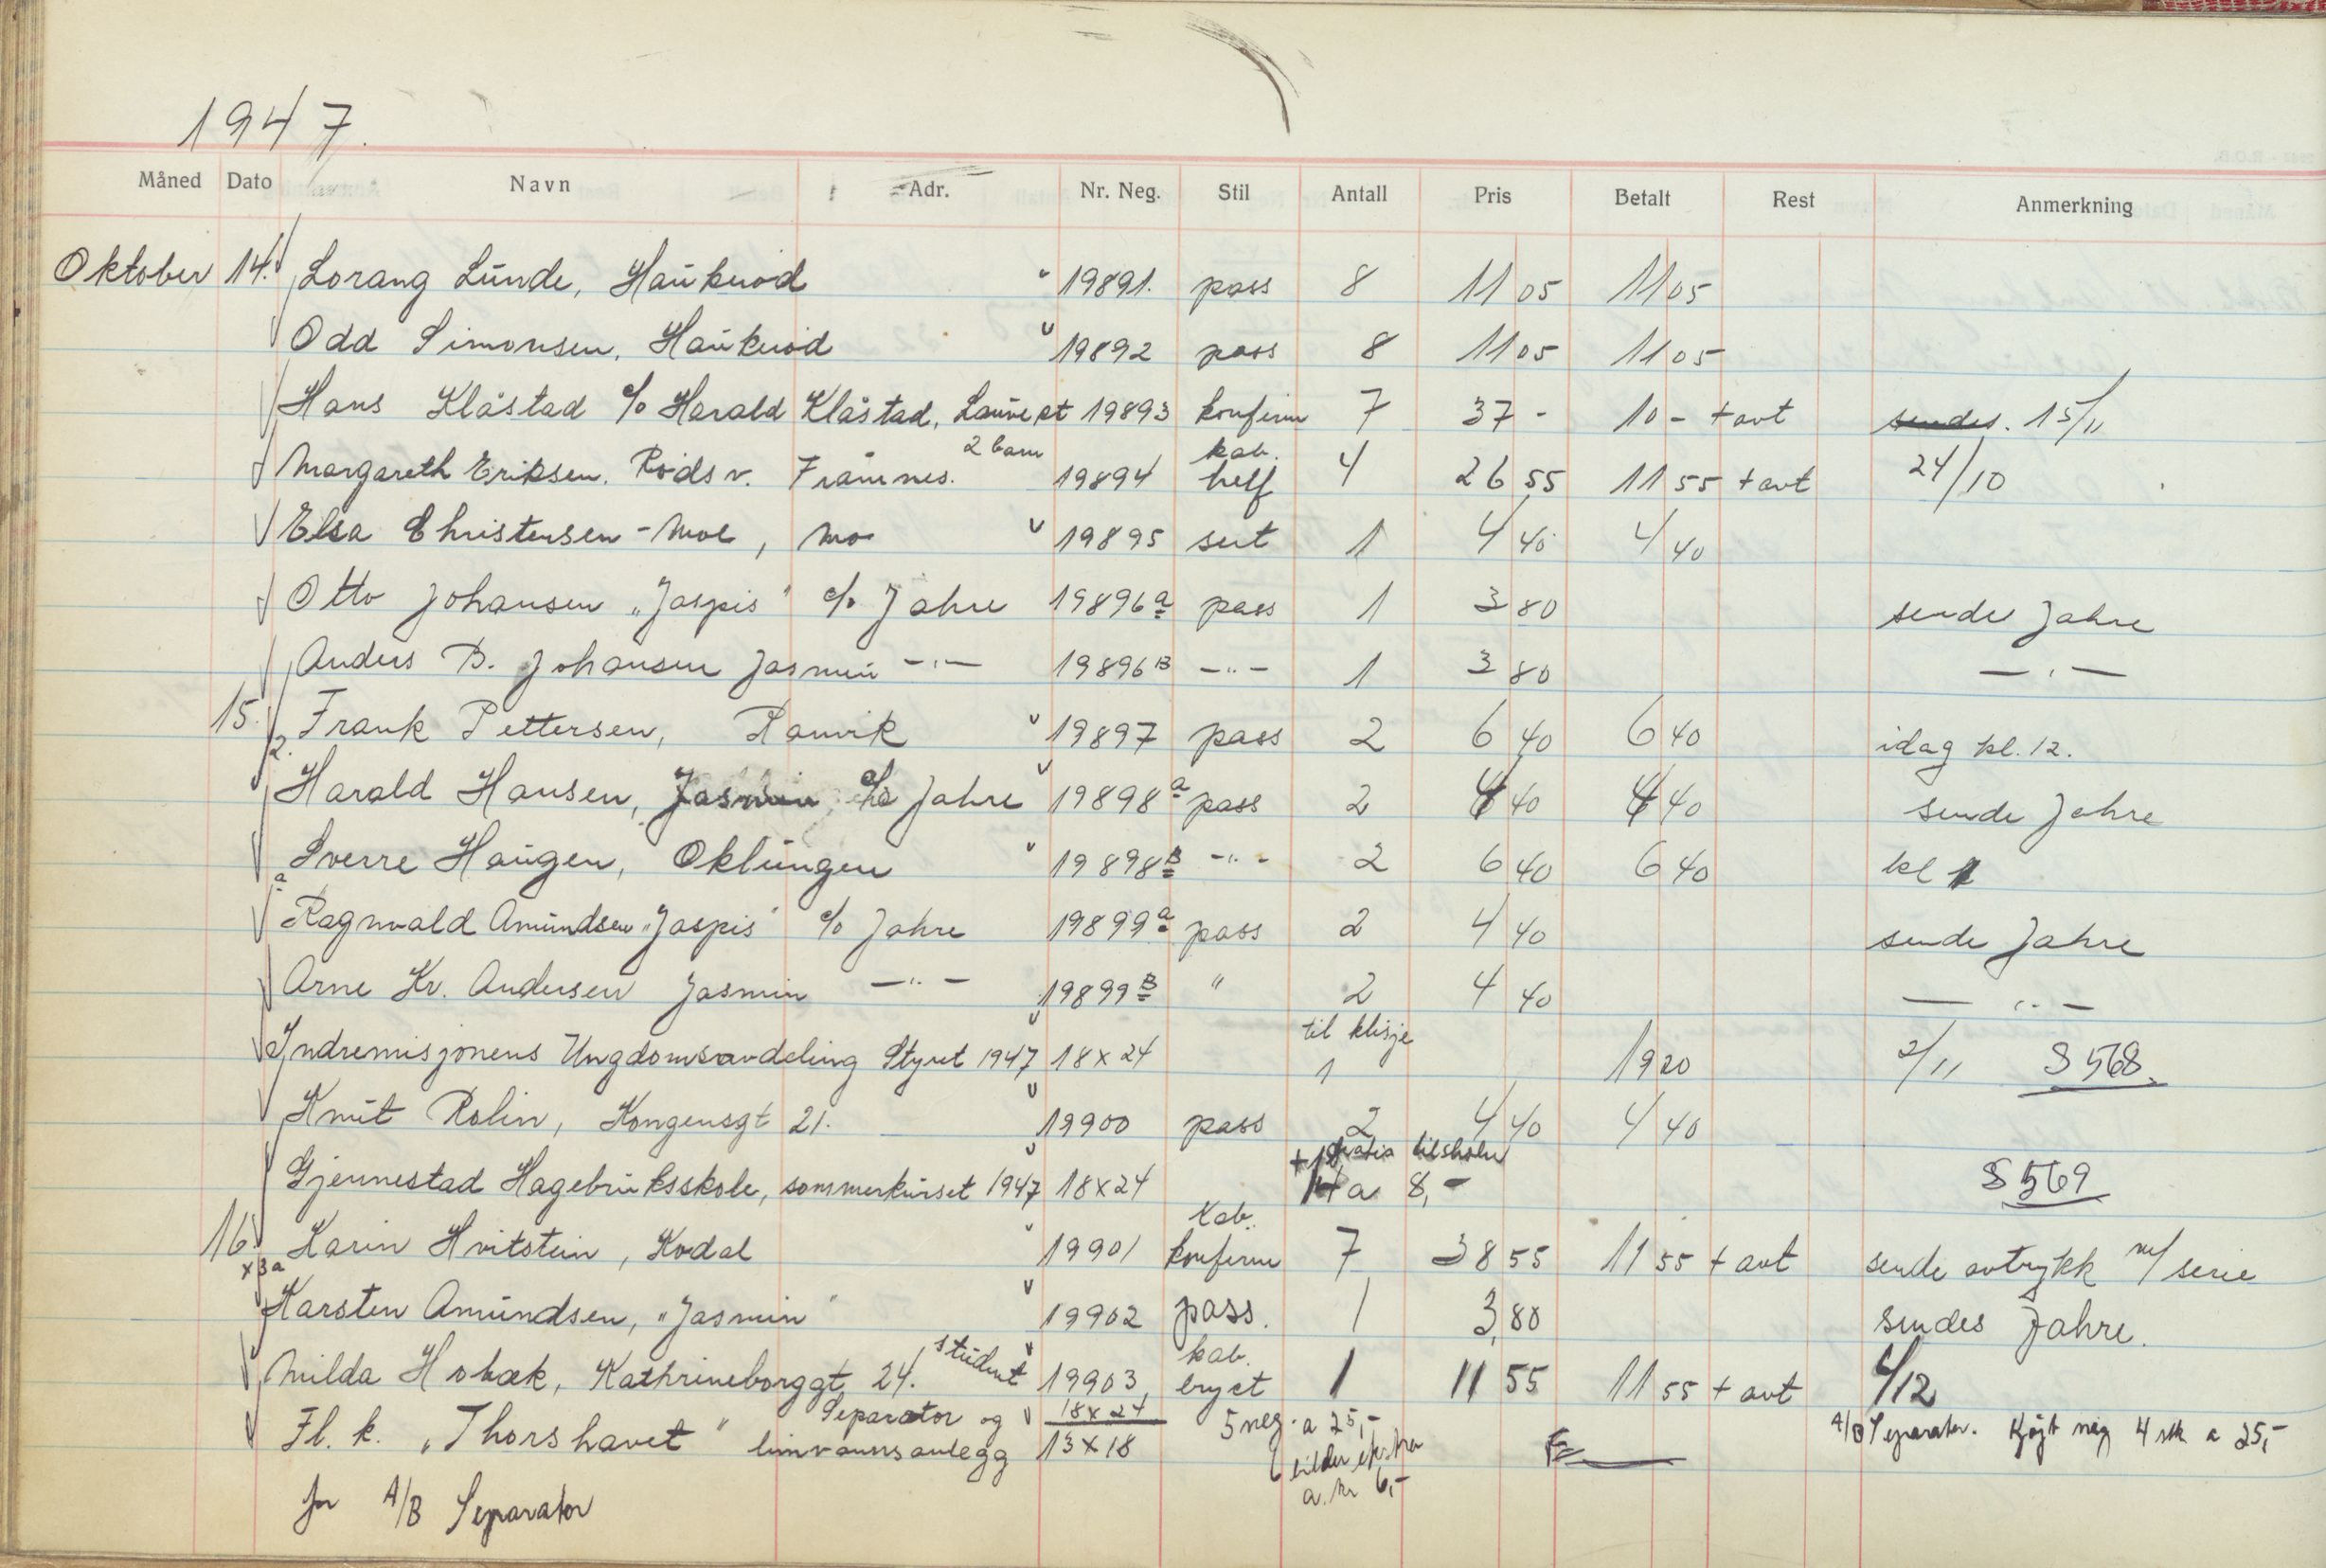 1947.
Måned Dato Navn Adr. Nr. Neg. Stil Antall Pris Betalt Rest Anmerkning
Oktober 14. Lorang Lunde, Haukerød 19891. pass 8 11 05 11 05
Odd Simonsen, Haukerød 19892 pass 8 11 05 11 05
Hans Klåstad c/o Harald Klåstad, Lauve st 19893 konfirm 7 37 - 10 - + avt sendes. 15/11
Margareth Eriksen. Rødsv. Framnes. 2 barn 19894 kab. helf 4 26 55 11 55 + avt 24/10
Elsa Christensen - Moe, Mo 19895 sert 1 4 40 4 40
Otto Johansen „Jaspis" c/o Jahre 19896 a pass 1 3 80 sende Jahre
Anders B. Johansen Jasmin —"— 19896 B —"— 1 3 80 —"—
15. Frank Pettersen, Ranvik 19897 pass 2 6 40 6 40 idag kl. 12.
2.
Harald Hansen, Jasmin c/o Jahre 19898 a pass 2 4 40 4 40 sende Jahre
Sverre Haugen, Oklungen 19898 B —"— 2 6 40 6 40 kl 1
a
Ragnvald Amundsen „Jaspis" c/o Jahre 19899 a pass 2 4 40 sende Jahre
Arne Kr. Andersen Jasmin —"— 19899 B " 2 4 40 —"—
Indremisjonens Ungdomsavdeling Styret 1947 18 x 24 til klisje 1 19 20 2/11 S 568.
Knut Rolin, Kongensgt 21. 19900 pass 2 4 40 4 40
Gjennestad Hagebruksskole, sommerkurset 1947 18 x 24 + 1 gratis til skolen 14 a 8,- S 569
16. Karin Hvitstein, Kodal 19901 Kab. konfirm 7 38 55 11 55 + avt sende avtrykk m/ serie
x 3 a
Karsten Amundsen, „Jasmin" 19902 pass. 1 3,80 sendes Jahre.
Milda Hobæk, Kathrineborggt 24. student 19903, kab. bryst 1 11 55 11 55 + avt 4/12
Fl. k. „Thorshavet" Separator og limvannsanlegg 18 x 24 13 x 18 5 neg. a 25,- A/B Separator. Kjøpt neg 4 stk a 25,-
6 bilder ekstra
a. kr 6,-
for A/B Separator